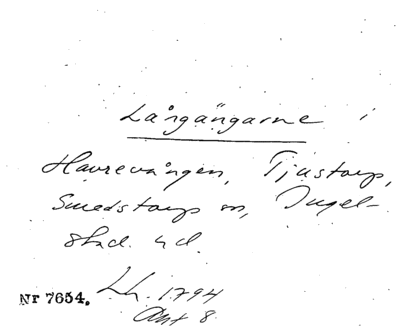 Långängarne i
Havrevången, Tjustorp,
Smedstorp sn, Ingel-
stad hd.
Nr 7654. Lh. 1794
Akt 8.